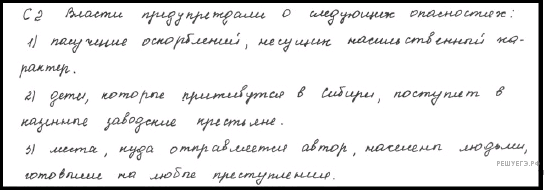 С2 Власти предупреждали о следующих опасностях:
1) получение оскорблений, несущих насильственный ха-
рактер.
2) дети, которые приживутся в Сибири, поступят в
казённые заводские крестьяне.
3) места, куда отправляется автор, населены людьми,
готовыми на любые преступления.
РЕШУЕГЭ.РФ